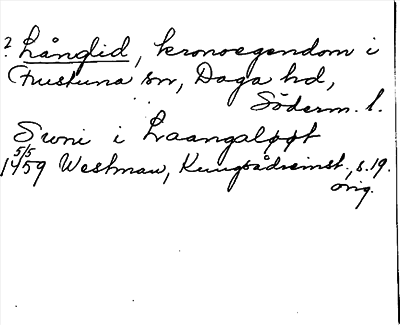 ? Långlid, kronoegendom i
Frustuna sn, Daga hd,
Söderm. l.
Swni i Laangaløøt
5/5
1459 Westman, Kungsådreinst., s. 19.
orig.